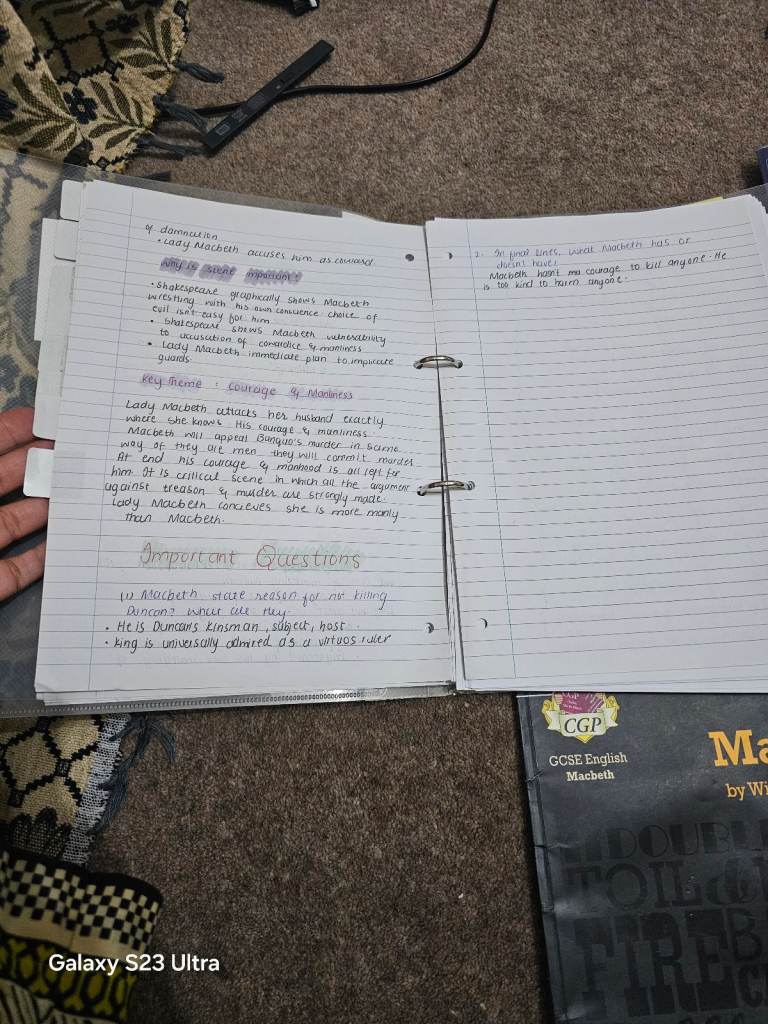 of damnation
• Lady Macbeth accuses him as coward
Why is scene important?
• Shakespeare graphically shows Macbeth
wrestling with his own conscience choice of
evil isn't easy for him.
• Shakespeare shews Macbeth vulnerability
to accusation of cowardice & manliness
• Lady Macbeth immediate plan to implicate
guards.
Key Theme : Courage & Manliness
Lady Macbeth attacks her husband exactly
where she knows. His courage & manliness.
Macbeth will appeal Banquo's murder in same
way of they are men they will commit murder
At end his courage & manhood is all left for
him. It is critical scene in which all the argument
against treason & murder are strongly made.
Lady Macbeth concieves she is more manly
than Macbeth.
Important Questions
(1) Macbeth state reason for not killing
Duncan? What are they.
• He is Duncan's kinsman, subject, host.
• King is universally admired as a virtuos ruler
2. In final lines, what Macbeth has or
doesn't have?
Macbeth hasn't courage to kill anyone. He
is too kind to harm anyone.
CGP
GCSE English
Macbeth
Ma
by Wi
DOUBL
TOIL &
FIRE B
Galaxy S23 Ultra